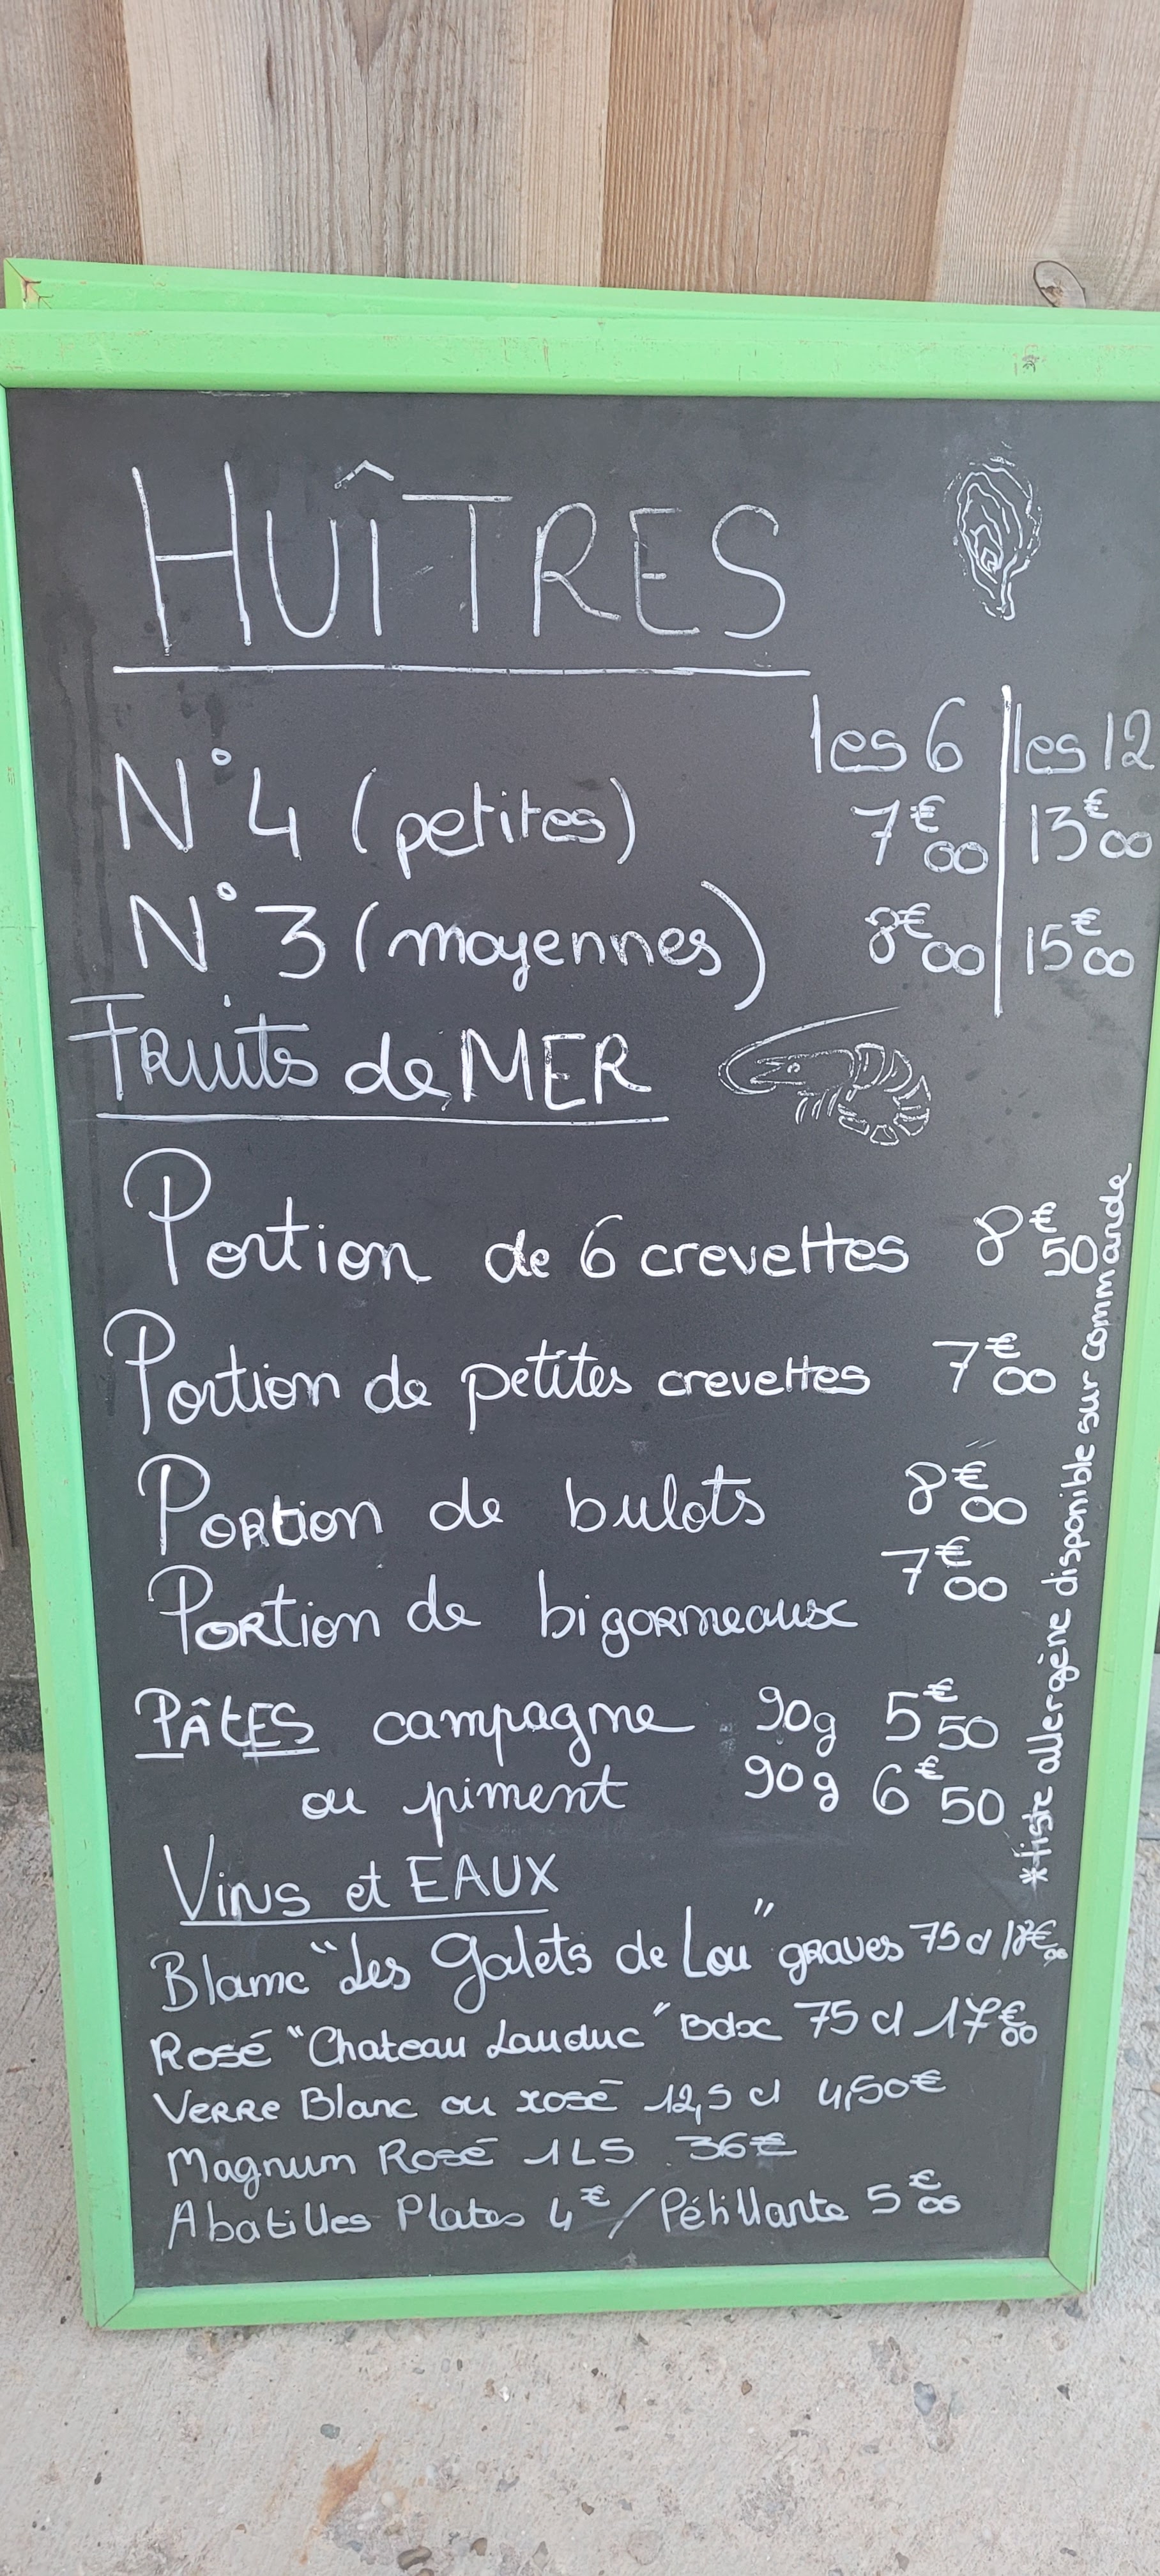 HUÎTRES
les 6 | les 12
N°4 (petites) 7€00 | 13€00
N°3 (moyennes) 8€00 | 15€00
Fruits de MER
Portion de 6 crevettes 8€50
Portion de petites crevettes 7€00
Portion de bulots 8€00
Portion de bigorneaux 7€00
PÂtES campagne 90g 5€50
ou piment 90g 6€50
Vins et EAUX
Blanc "Les Galets de Lou" graves 75cl 18€00
Rosé "Chateau Lauduc" Bdx 75cl 17€00
Verre Blanc ou rosé 12,5 cl 4,50€
Magnum Rosé 1L5 36€
Abatilles Plates 4€ / Pétillante 5€00
*liste allergène disponible sur commande